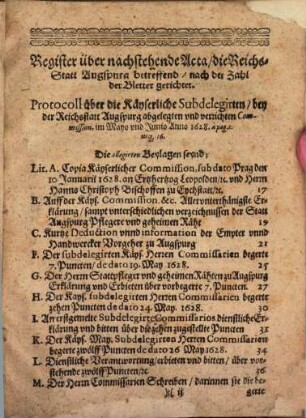 Register über nachstehende Acta / die Reichs-
Statt Augspurg betreffend / nach der Zahl
der Bletter gerichtet.
Protocoll über die Käyserliche Subdelegirten / bey
der Reichsstatt Augspurg abgelegten vnd verrichten Com-
mission, im Mayo vnd Junio Anno 1628. a pag. 1.
usq; 16.
Die allegirten Beylagen seynd:
Lit. A. Copia Käyserlicher Commission, sub dato Prag den
10 Januarii 1628. an Ertzhertzog Leopolden / &c. vnd Herrn
Hanns Christoph Bischoffen zu Eychstätt / &c. 17
B. Auff der Käys. Commission. &c. Allervnterthänigste Er-
klärung / sampt vnterschiedlichen verzeichnussen der Statt
Augspurg Pflegere vnd geheimen Räthe 19
C. Kurtze Deduction vnnd information der Empter vnnd
Handwercker Vorgeher zu Augspurg 21
F. Der subdelegirten Käys. Herren Commissarien begerte
7. Puncten / de dato 19. May 1628. 25
G. Der Herrn Stattpfleger vnd geheimen Räthen zu Augspurg
Erklärung vnd Erbieten über vorbegerte 7. Puncten. 27
H. Der Käys. subdelegirten Herren Commissarien begerte
zehen Puncten de dato 24. May. 1628. 30
I. An erstgemelte Subdelegirte Commissarios dienstliche Er-
klärung vnd bitten über die zehen zugestellte Puncten 31
K. Der Käys. May. Subdelegirten Herren Commissarien
begerte zwölff Puncten de dato 26 May 1628. 34
L. Dienstliche Verantwortung / erbieten vnd bitten / über vor-
stehende zwölff Puncten / &c. 36
M. Der Herrn Commissarien Schreiben / darinnen sie die be-
gerte